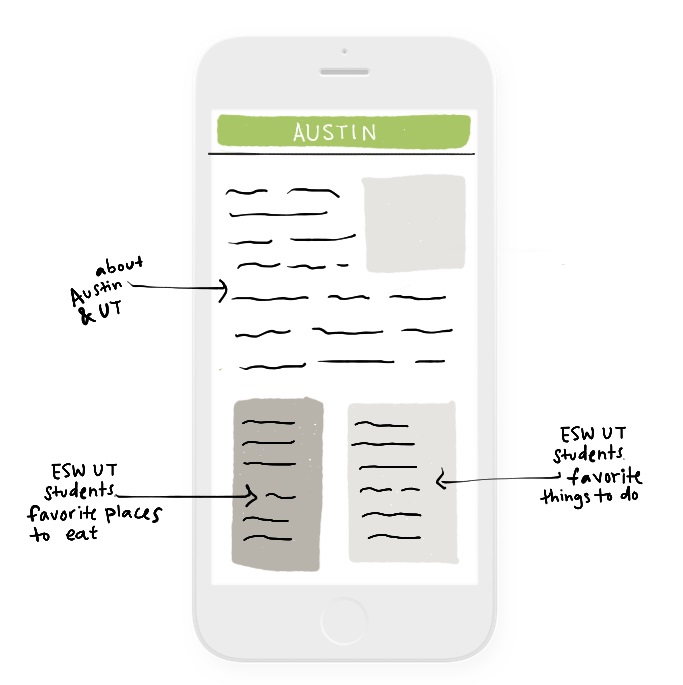 AUSTIN
about
Austin
& UT
ESW UT
students
favorite places
to eat
ESW UT
students
favorite
things to do